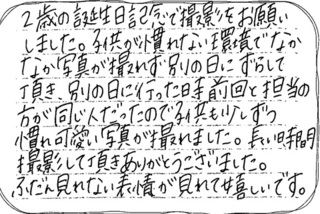 2歳の誕生日記念で撮影をお願い
しました。子供が慣れない環境でなか
なか写真が撮れず別の日にずらして
頂き、別の日に行った時前回と担当の
方が同じ人だったので子供も少しずつ
慣れ可愛い写真が撮れました。長い時間
撮影して頂きありがとうございました。
ふだん見れない表情が見れて嬉しいです。